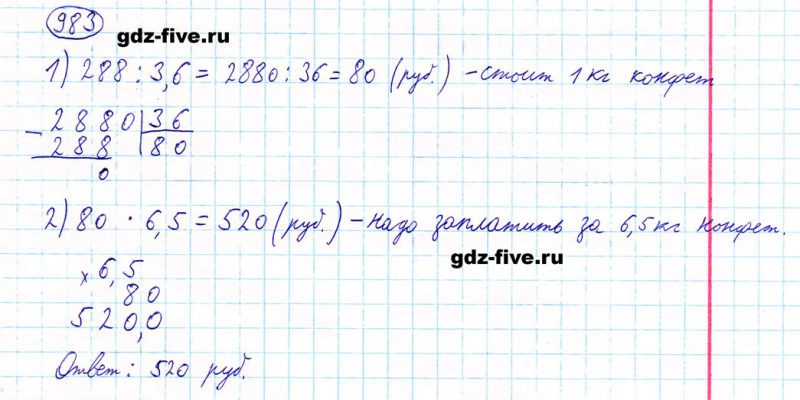 983
gdz-five.ru
1) 288 : 3,6 = 2880 : 36 = 80 (руб.) – стоит 1 кг конфет
– 2880 | 36
288 | 80
0
2) 80 · 6,5 = 520 (руб.) – надо заплатить за 6,5 кг конфет.
gdz-five.ru
× 6,5
80
520,0
Ответ: 520 руб.